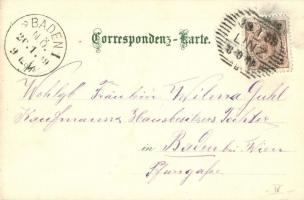 BADEN 1
N.Ö.
Correspondenz-Karte.
Wohlgb. Fräulein Wilma Guhl
Kaufmanns Hausbesitzers Tochter
in Baden bei Wien
Pfarrgasse